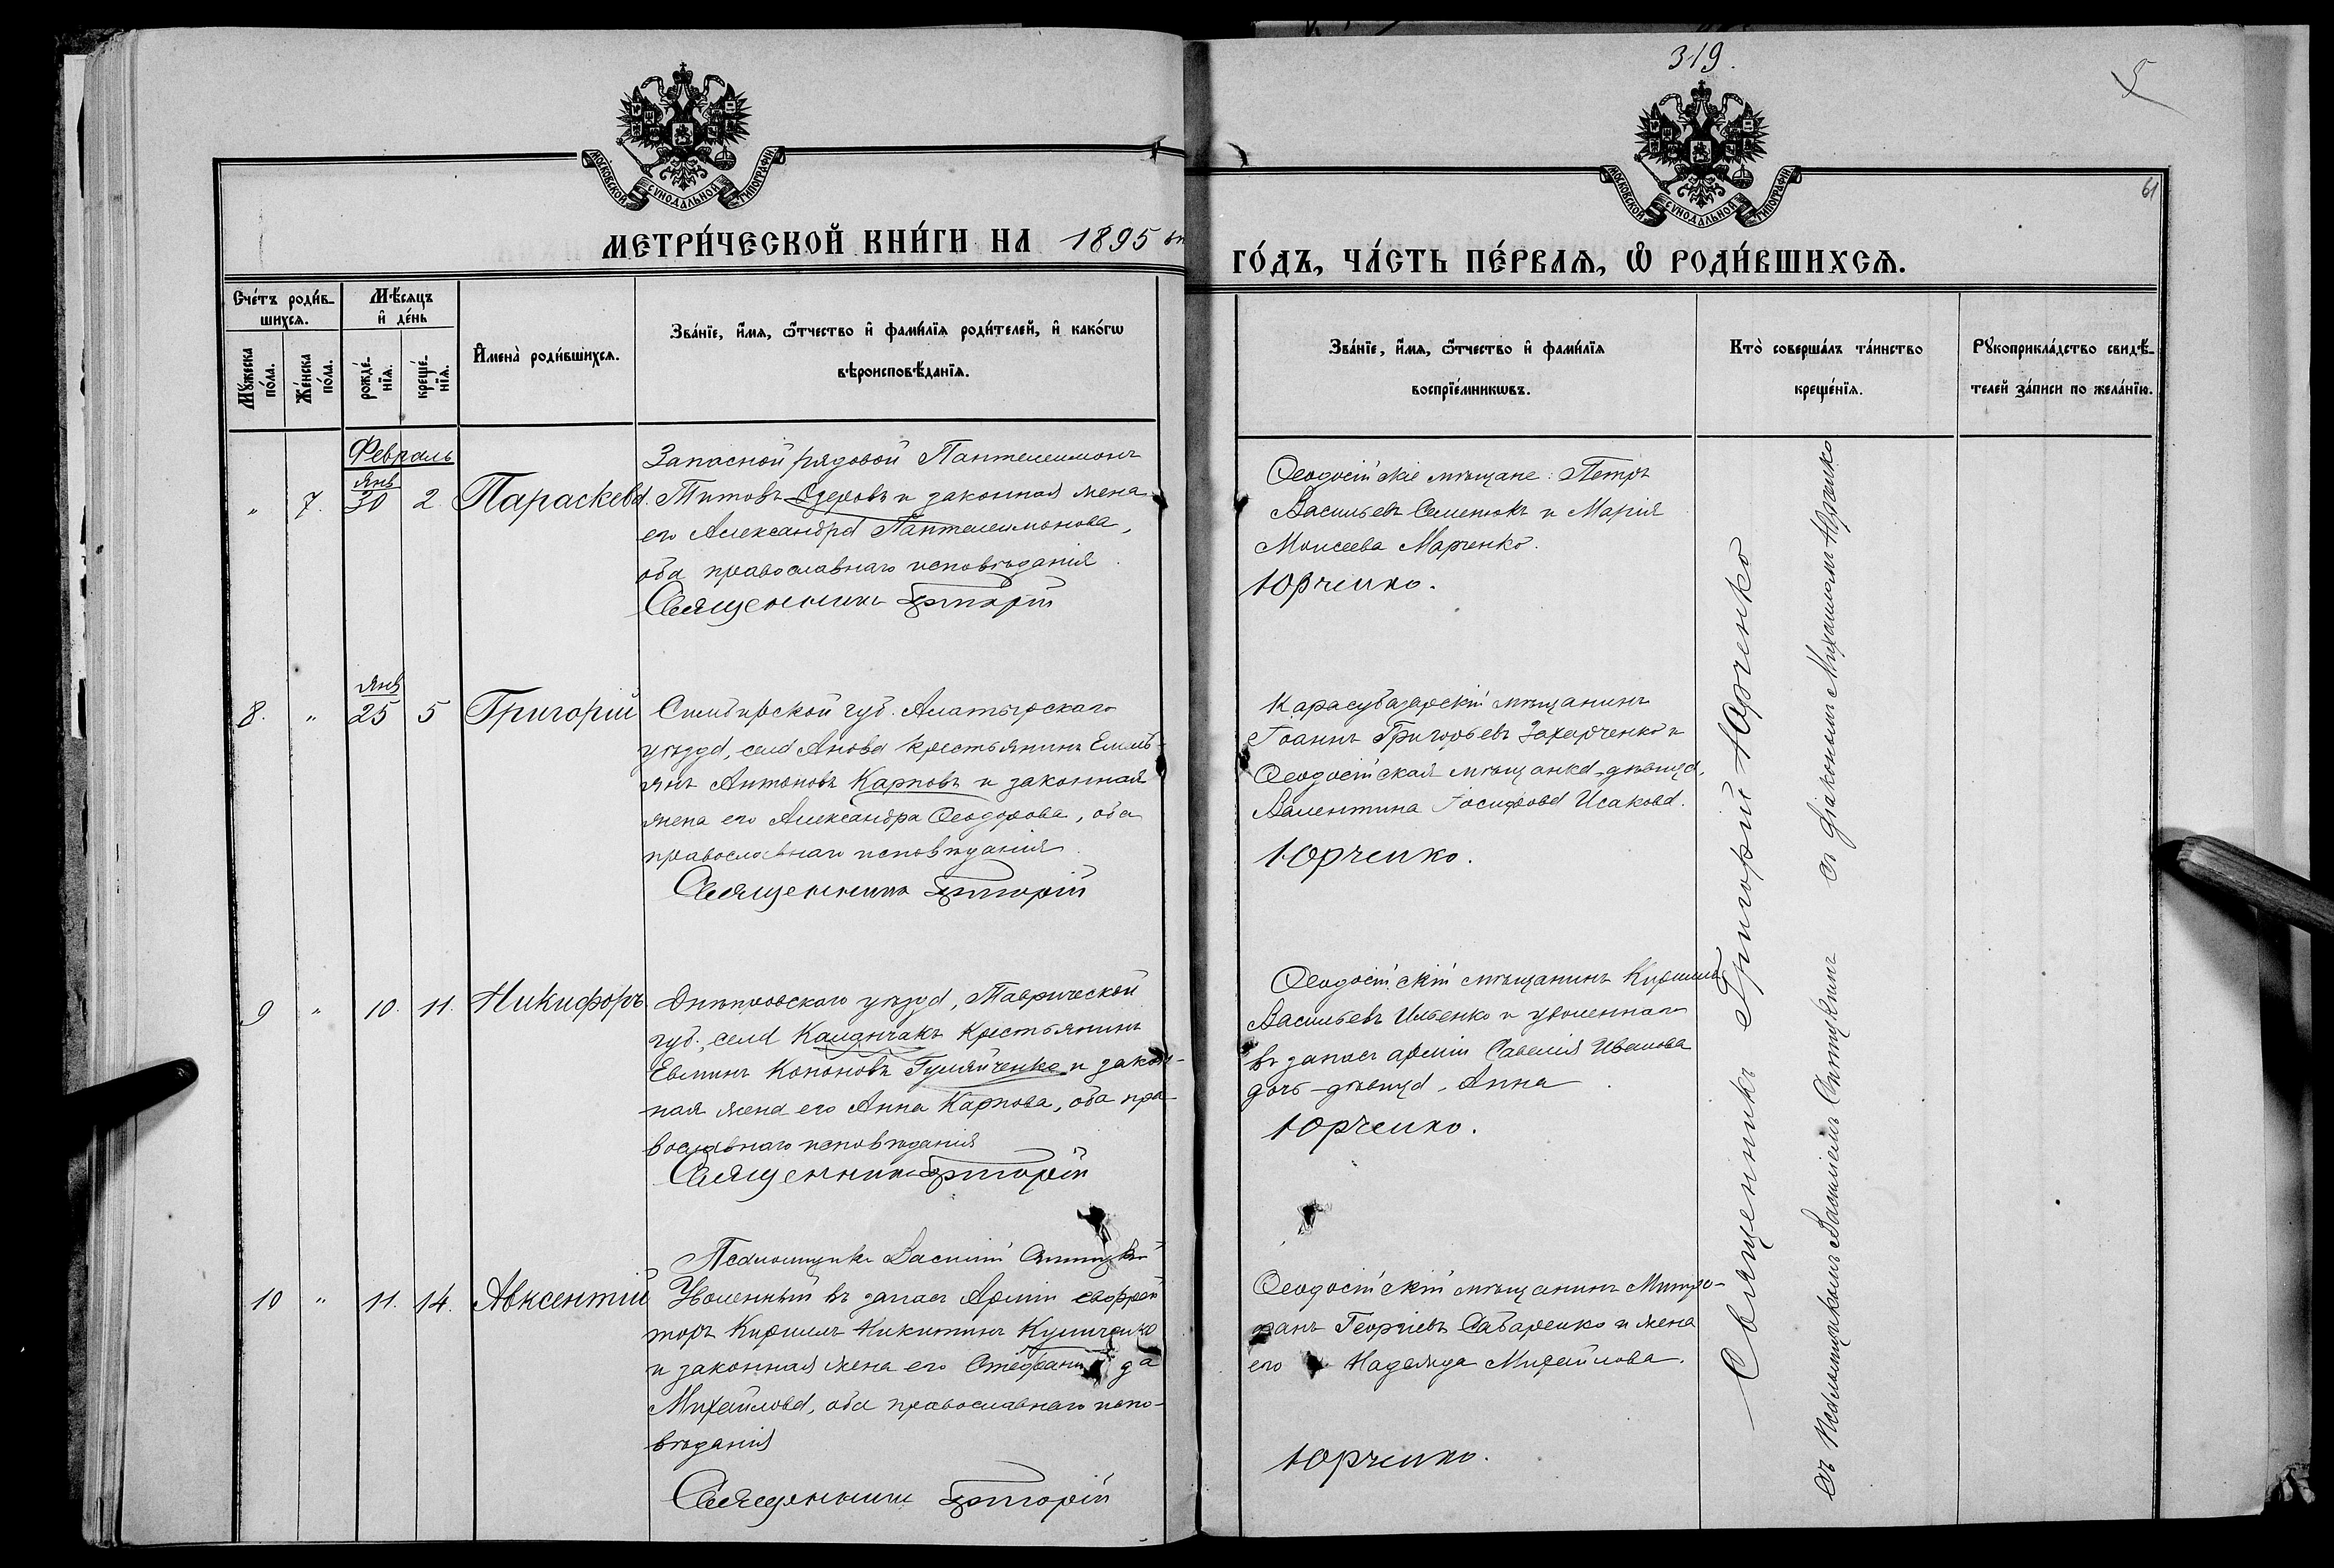 319.
5
61
МОСКОВСКОЙ СѴНОДАЛЬНОЙ ТИПОГРАФІИ
МОСКОВСКОЙ СѴНОДАЛЬНОЙ ТИПОГРАФІИ
МЕТРИ́ЧЕСКОЙ КНИ́ГИ НА 1895
ГО́ДЪ, ЧА́СТЬ ПЕ́РВАѦ, Ѡ҆ РОДИ́ВШИХСѦ.
Сче́тъ роди́в-
шихсѧ.
Мꙋ́жеска
по́ла.
Же́нска
по́ла.
Мѣ́сѧцъ
и҆ де́нь
рожде́-
нїѧ.
креще́-
нїѧ.
И҆мена̀ роди́вшихсѧ.
Зва́нїе, и҆́мѧ, ѻ҆́тчество и҆ фами́лїѧ роди́телей, и҆ како́гѡ
вѣроисповѣ́данїѧ.
Зва́нїе, и҆́мѧ, ѻ҆́тчество и҆ фами́лїѧ
воспрїе́мникѡвъ.
Кто̀ соверша́лъ та́инство
креще́нїѧ.
Рꙋкоприкла́дство свидѣ́-
телей за́писи по жела́нїю.
Февраль
Янв
" 7. 30 2 Параскева.
Запасной рядовой Пантелеимонъ
Титовъ и законная жена
его Александра Пантелеимонова,
оба православнаго исповѣданія.
Священникъ Григорій
Ѳеодосійскіе мѣщане: Петръ
Васильевъ Семенюкъ и Марія
Моисеева Марченко.
Юрченко.
Янв
8. " 25 5 Григорій
Симбирской губ. Алатырскаго
уѣзда, села Анова крестьянинъ Емель-
янъ Антоновъ Карповъ и законная
жена его Александра Ѳеодорова, оба
православнаго исповѣданія.
Священникъ Григорій
Карасубазарскій мѣщанинъ
Іоаннъ Григорьевъ Захарченко и
Ѳеодосійская мѣщанка-дѣвица,
Валентина Іосифова Исакова.
Юрченко.
9 " 10. 11. Никифоръ
Днѣпровскаго уѣзда, Таврической
губ., села Каланчакъ крестьянинъ
Кононовъ и закон-
ная жена его Анна Карпова, оба пра-
вославнаго исповѣданія
Священникъ Григорій
Ѳеодосійскій мѣщанинъ Кириллъ
Васильевъ Ильенко и уволеннаго
въ запасъ арміи Савелія Иванова
дочь-дѣвица, Анна
Юрченко.
Псаломщикъ Василій
10 " 11. 14. Авксентій
Уволенный въ запасъ Арміи ефрей
торъ Кириллъ Никитинъ
и законная жена его Стефани да
Михайлова, оба православнаго испо-
вѣданія
Священникъ Григорій
Ѳеодосійскій мѣщанинъ Митро-
фанъ Георгіевъ и жена
его Надежда Михайлова.
Юрченко.
Священникъ Григорій Юрченко
съ діакономъ Михаиломъ Юрченко
съ Псаломщикомъ Василіемъ